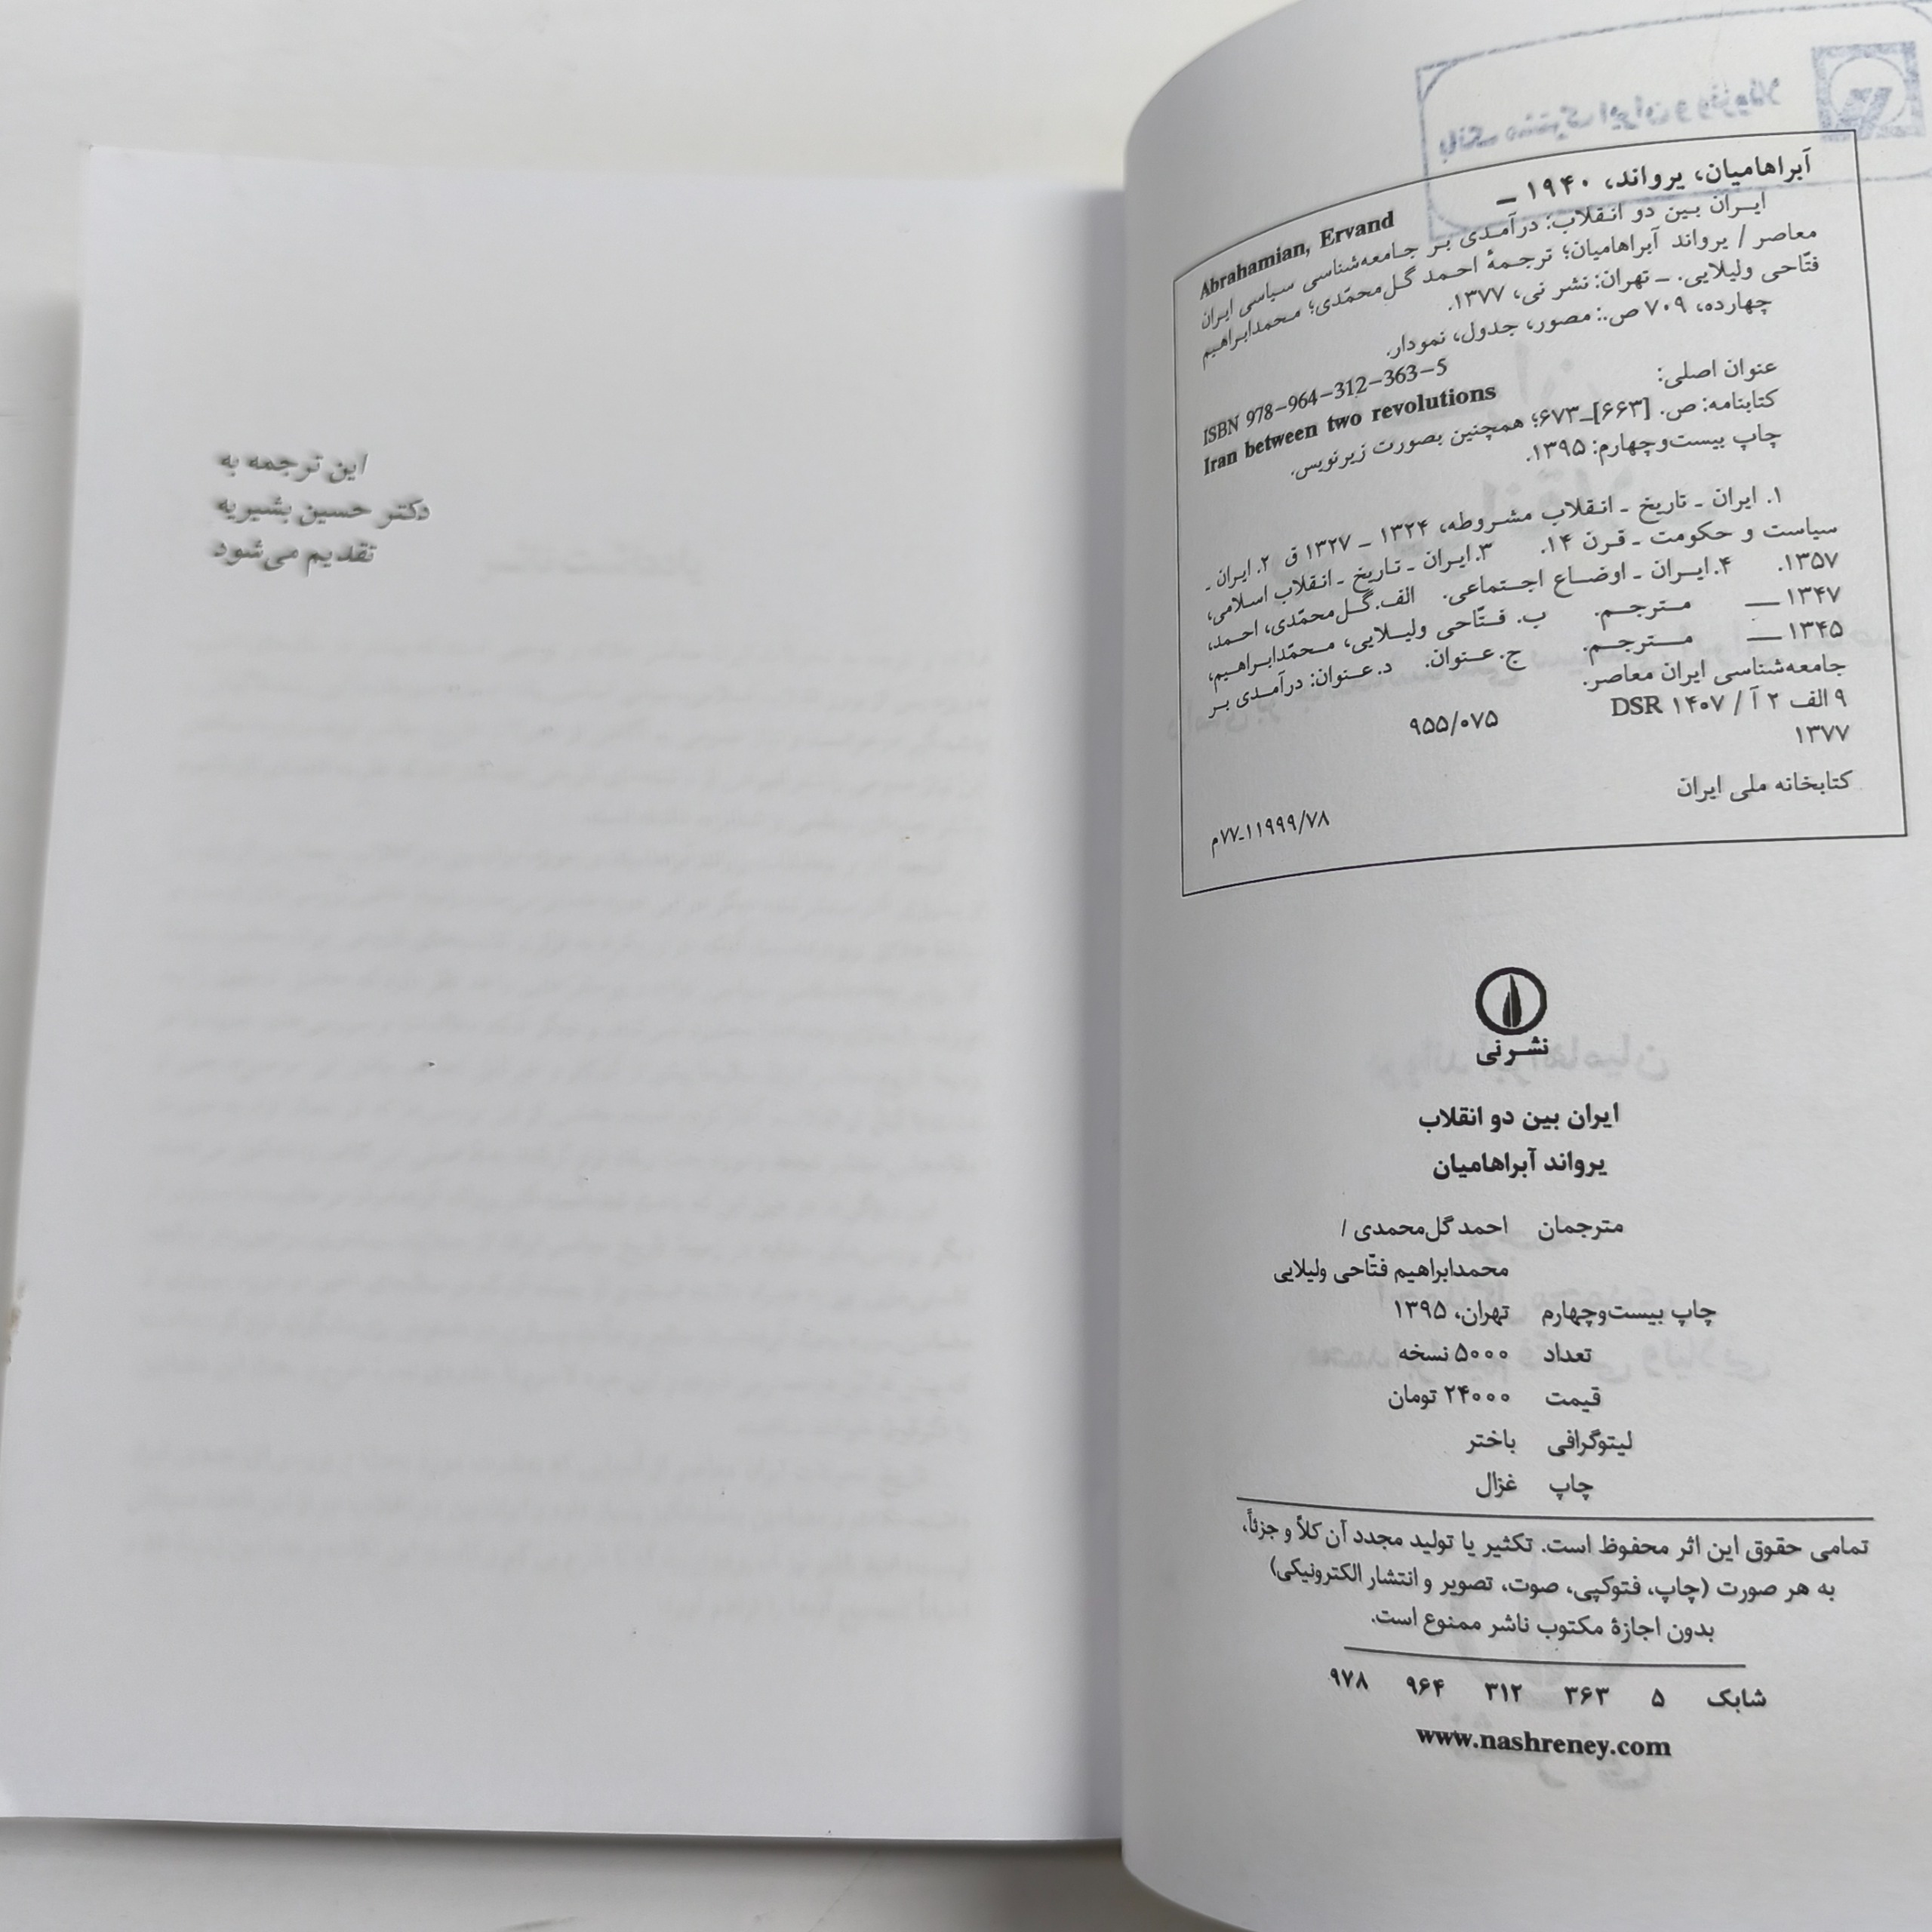 آبراهامیان، یرواند، ۱۹۴۰ ـ
Abrahamian, Ervand
ایران بین دو انقلاب: درآمدی بر جامعه‌شناسی سیاسی ایران
معاصر / یرواند آبراهامیان؛ ترجمهٔ احمد گل‌محمّدی؛ محمدابراهیم
فتّاحی ولیلایی. ـ تهران: نشر نی، ۱۳۷۷.
چهارده، ۷۰۹ ص.: مصور، جدول، نمودار.
ISBN 978-964-312-363-5
عنوان اصلی: Iran between two revolutions
کتابنامه: ص. [۶۶۳]ـ۶۷۳؛ همچنین بصورت زیرنویس.
چاپ بیست‌وچهارم: ۱۳۹۵.
۱. ایران ـ تاریخ ـ انقلاب مشروطه، ۱۳۲۴ ـ ۱۳۲۷ ق ۲. ایران ـ
سیاست و حکومت ـ قرن ۱۴. ۳. ایران ـ تاریخ ـ انقلاب اسلامی،
۱۳۵۷. ۴. ایران ـ اوضاع اجتماعی. الف. گل‌محمّدی، احمد،
۱۳۴۷ ــ مترجم. ب. فتّاحی ولیلایی، محمّدابراهیم،
۱۳۴۵ ــ مترجم. ج. عنوان. د. عنوان: درآمدی بر
جامعه‌شناسی ایران معاصر.
۹ الف ۲ آ / ۱۴۰۷ DSR ۹۵۵/۰۷۵
۱۳۷۷
کتابخانه ملی ایران
۷۷ـ۱۱۹۹۹/۷۸م
نشر نی
ایران بین دو انقلاب
یرواند آبراهامیان
مترجمان احمد گل‌محمدی /
محمدابراهیم فتّاحی ولیلایی
چاپ بیست‌وچهارم تهران، ۱۳۹۵
تعداد ۵۰۰۰ نسخه
قیمت ۲۴۰۰۰ تومان
لیتوگرافی باختر
چاپ غزال
تمامی حقوق این اثر محفوظ است. تکثیر یا تولید مجدد آن کلاً و جزئاً،
به هر صورت (چاپ، فتوکپی، صوت، تصویر و انتشار الکترونیکی)
بدون اجازهٔ مکتوب ناشر ممنوع است.
شابک ۵ ۳۶۳ ۳۱۲ ۹۶۴ ۹۷۸
www.nashreney.com
این ترجمه به
دکتر حسین بشیریه
تقدیم می‌شود